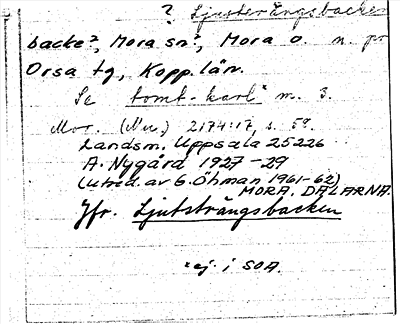 ? Ljusterängsbacken
backe?, Mora sn?, Mora o. n. pr
Orsa tg, Kopp. län.
Se tomt-karl m. 3.
Mor. (Nu.) 2174:17, s. 59.
Landsm. Uppsala 25226
A. Nygård 1927-29
(utred. av G. Öhman 1961-62)
MORA, DALARNA.
Jfr. Ljutsträngsbacken
*ej i SOA.